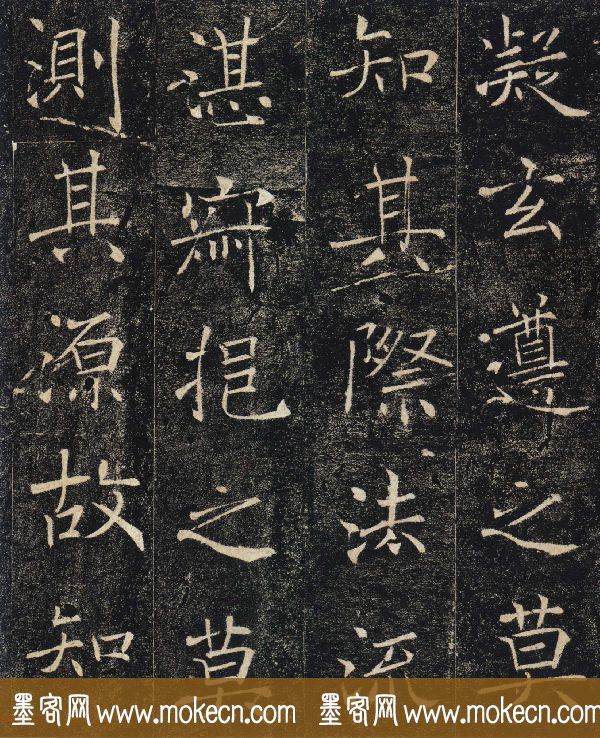 凝玄遵之莫
知其際法流
湛寂挹之莫
測其源故知
墨客网 www.mokecn.com 墨客网 www.mokecn.com